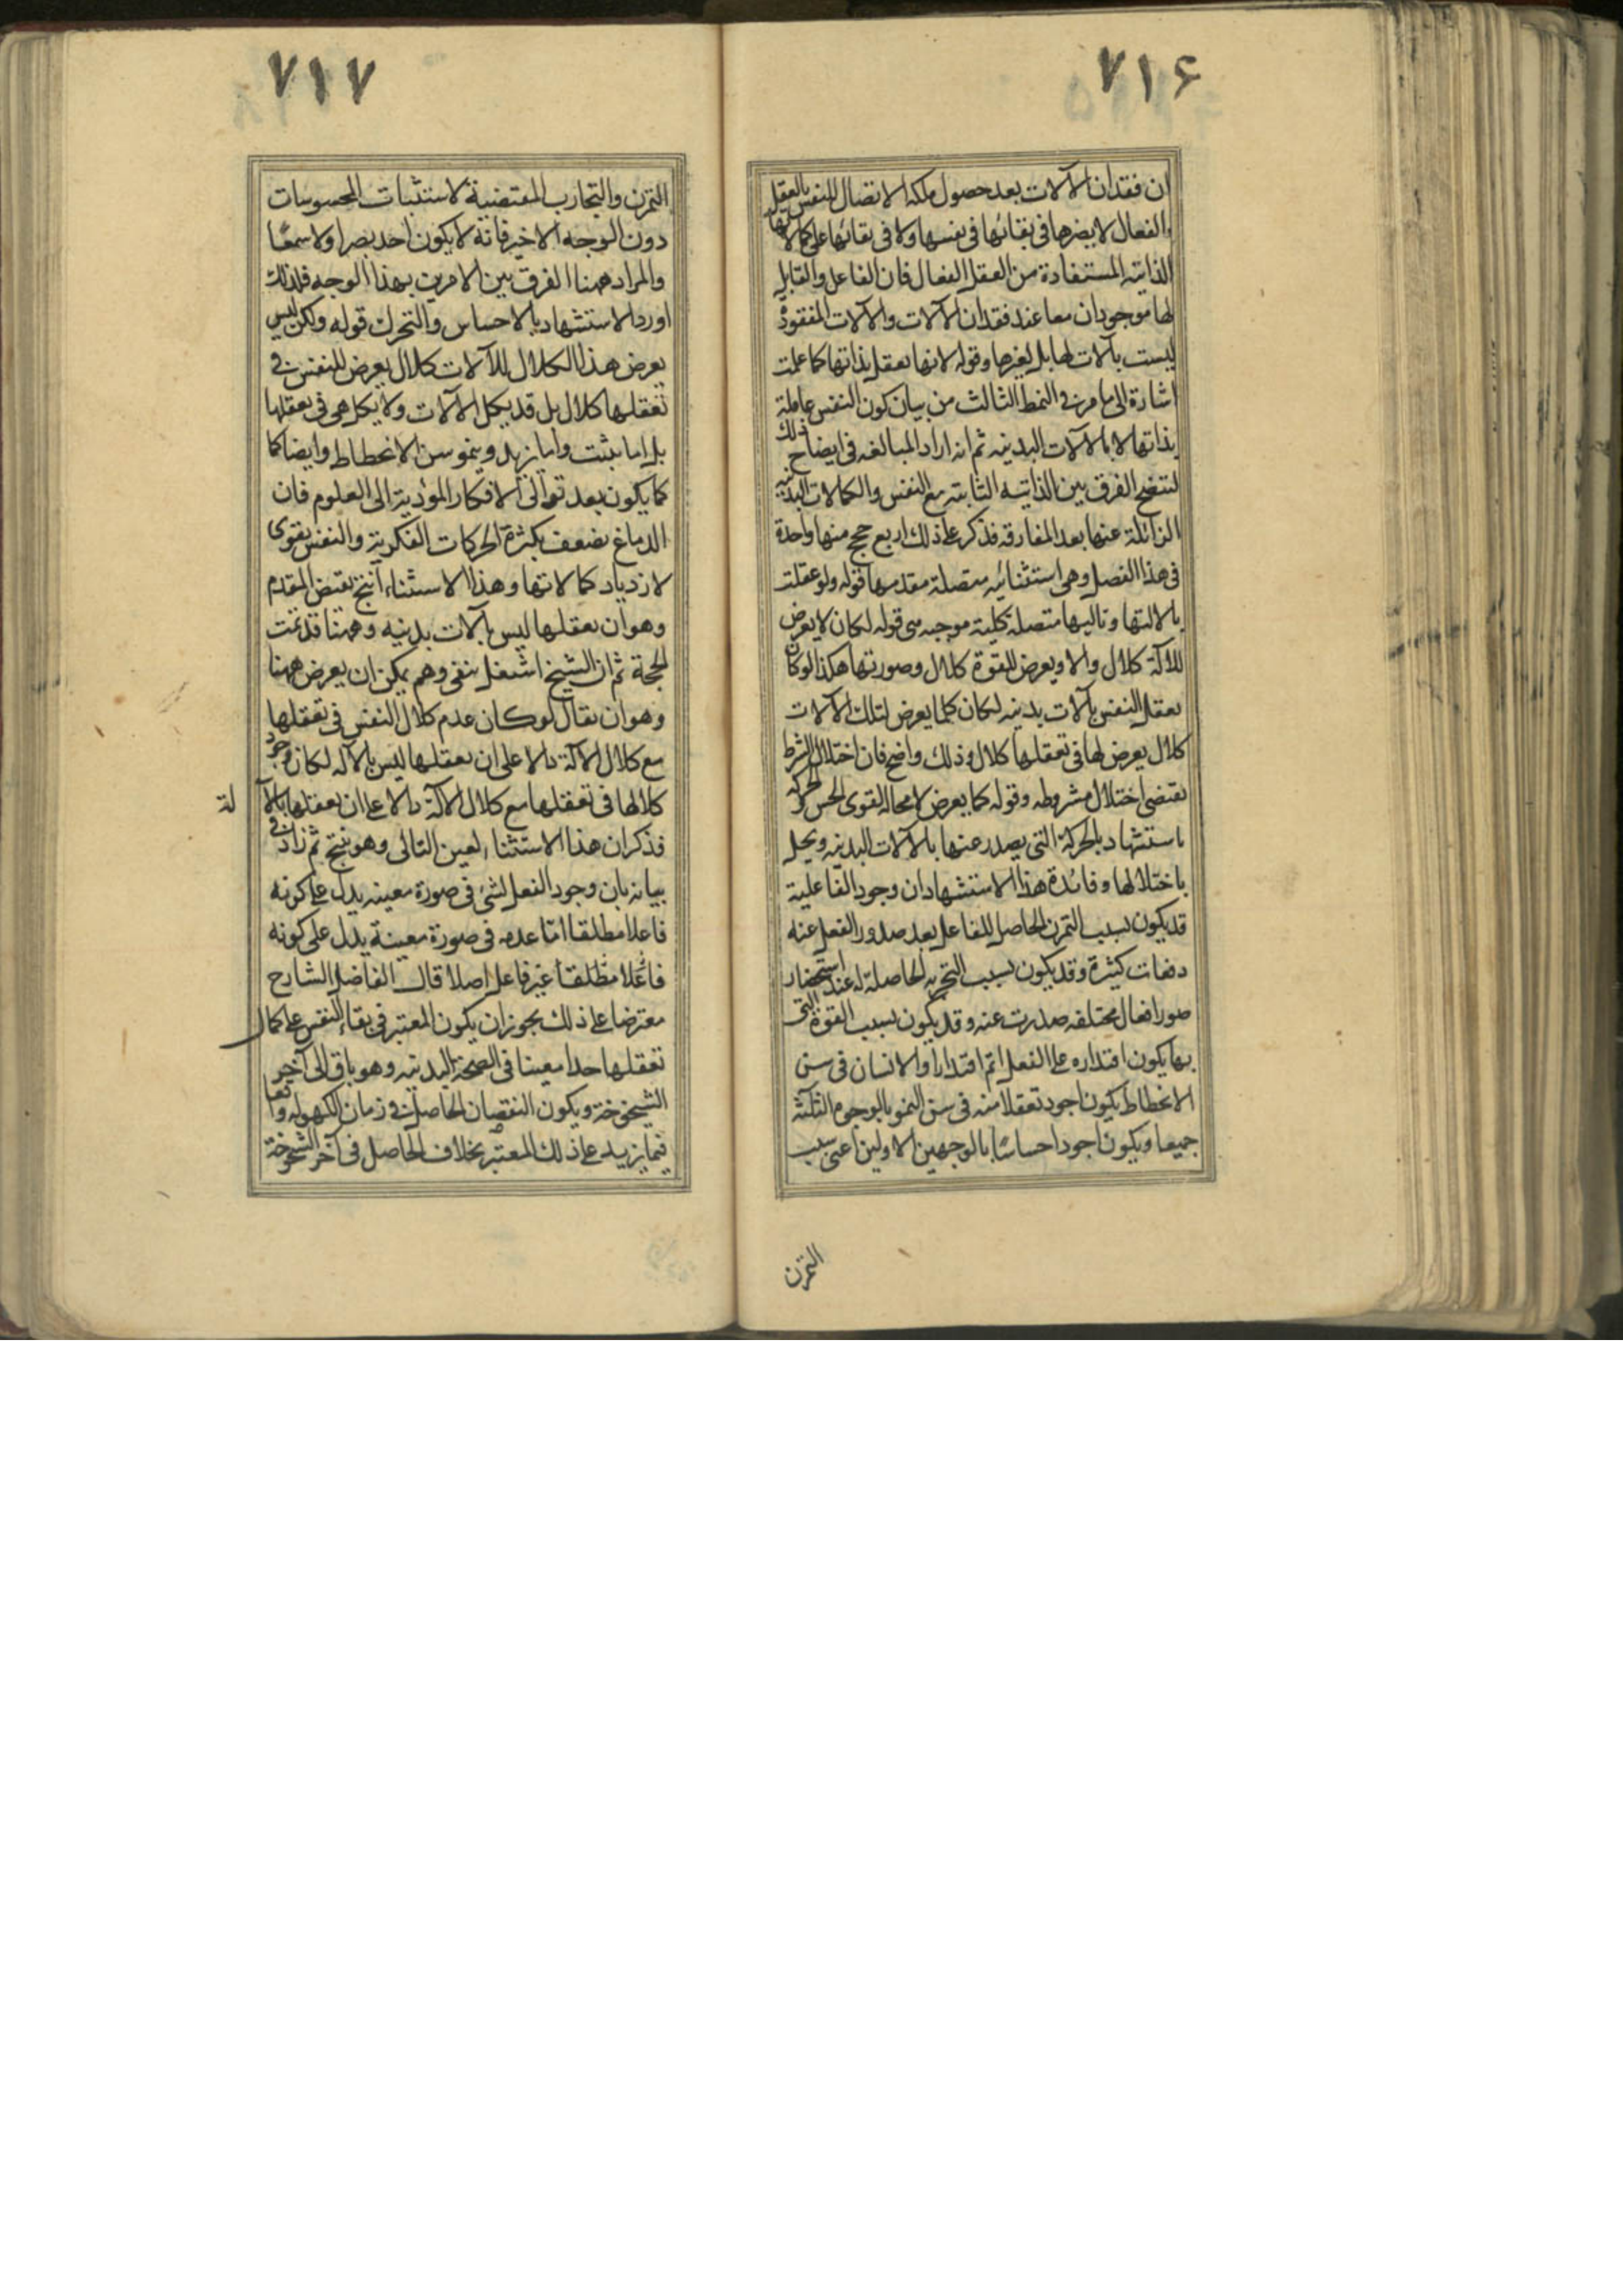 ٧١۶
ان فقدان الآلات بعد حصول ملكه الاتصال للنفس بالعقل
الفعال لا يضرها في بقائها في نفسها ولا في بقائها على كمالاتها
الذاتيه المستفادة من العقل الفعال فان الفاعل والقابل
لها موجودان معا عند فقدان الآلات والآلات المفقودة
ليست بآلات لها بل لغيرها وقوله لانها تعقل بذاتها كما علمت
اشارة الى ما مر في النمط الثالث من بيان كون النفس عاقلة
بذاتها لا بالآلات البدنيه ثم انه اراد المبالغه في ايضاح ذلك
لتتضح الفرق بين الذاتيه الثابته مع النفس والكمالات البدنيه
الزائلة عنها بعد المفارقه فذكر على ذلك اربع حجج منها واحدة
في هذا الفصل وهي استثنائيه متصلة مقدمها قوله ولو عقلت
بالالتها وتاليها متصلة كلية موجبه هي قوله لكان لا يعرض
للآلة كلال والا ويعرض للقوة كلال وصورتها هكذا لو كان
تعقل النفس بآلات بدنيه لكان كلما يعرض لتلك الآلات
كلال يعرض لها في تعقلها كلال وذلك واضح فان اختلال الشرط
يقتضى اختلال مشروطه وقوله كما يعرض لا محالة لقوى الحس والحركه
استشهاد بالحركة التي يصدر عنها بالآلات البدنيه ويختل
باختلالها وفائدة هذا الاستشهاد ان وجود الفاعلية
قد يكون بسبب التمرن الحاصل للفاعل بعد صدور الفعل عنه
دفعات كثيرة وقد يكون بسبب التجربه الحاصلة له عند استحضار
صور افعال مختلفه صدرت عنه وقد يكون بسبب القوة التي
بها يكون اقتداره على الفعل اتم اقتدارا والانسان في سن
الانحطاط يكون اجود تعقلا منه في سن النمو بالوجوه الثلثة
جميعا ويكون اجود احساسًا بالوجهين الاولين اعني بسبب
التمرن
٧١٧
التمرن والتجارب المقتضية لاستثبات المحسوسات
دون الوجه الاخير فانه لا يكون احد بصرا ولا سمعًا
والمراد ههنا الفرق بين الامرين بهذا الوجه فلذلك
اورد الاستشهاد بالاحساس والتحرك قوله ولكن ليس
يعرض هذا الكلال للآلات كلال يعرض للنفس في
تعقلها كلال بل قد يكل الآلات ولا يكل هي في تعقلها
بل اما يثبت واما يزيد وينمو سن الانحطاط وايضا كما
كما يكون بعد توالى الافكار المؤدية الى العلوم فان
الدماغ يضعف بكثرة الحركات الفكرية والنفس يقوى
لازدياد كمالاتها وهذا الاستثناء انتج نقيض المقدم
وهو ان تعقلها ليس بآلات بدنيه وههنا قد تمت
الحجة ثم ان الشيخ اشتغل بنفي وهم يمكن ان يعرض ههنا
وهو ان يقال لو كان عدم كلال النفس في تعقلها
مع كلال الآلة دالا على ان تعقلها ليس بالآله لكان وجود
كلالها في تعقلها مع كلال الآلة دالا على ان تعقلها بالآ
لة
فذكر ان هذا الاستثناء لعين التالى وهو ينتج ثم زاد في
بيانه بان وجود الفعل لشئ في صورة معينه يدل على كونه
فاعلا مطلقا اما عدمه في صورة معينة يدل على كونه
فاعلا مطلقا غير فاعل اصلا قال الفاضل الشارح
معترضا على ذلك يجوز ان يكون المعتبر في بقاء النفس على كمال
تعقلها حدا معينا في الصحة البدنيه وهو باق الى آخر
الشيخوخة ويكون النقصان الحاصل في زمان الكهولة واقعا
فيما يزيد على ذلك المعتبر بخلاف الحاصل في آخر الشيخوخة